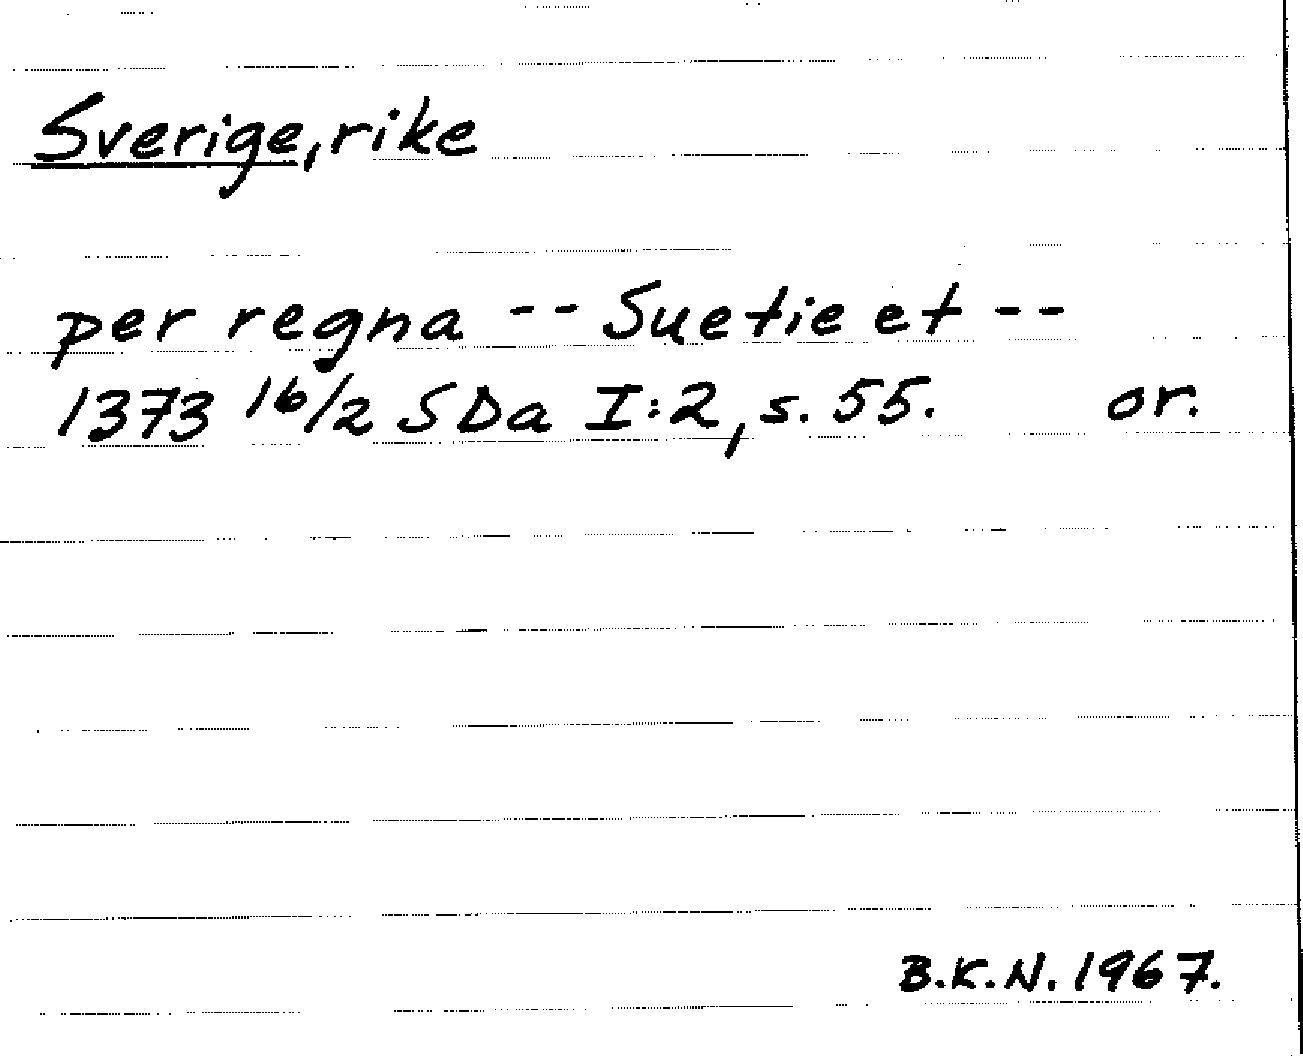 Sverige, rike
per regna -- Suetie et --
1373 16/2 SDa I:2, s. 55. or.
B.K.N. 1967.